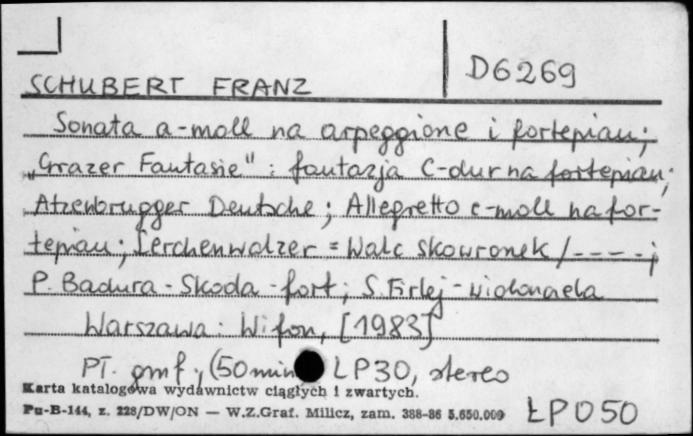 D6269
SCHUBERT FRANZ
Sonata a-moll na arpeggione i fortepian;
„Grazer Fantasie" : fantazja C-dur na fortepian;
Atzenbrugger Deutsche ; Allegretto c-moll na for-
tepian ; Lerchenwalzer = Walc skowronek /----;
P. Badura-Skoda - fort ; S. Firlej - wiolonczela
Warszawa : Wifon, [1983]
PŁ. gmf ; (50 min LP30, stereo
Karta katalogowa wydawnictw ciągłych i zwartych.
Pu-B-144, z. 228/DW/ON — W.Z.Graf. Milicz, zam. 388-86 5.650.000
ŁP050